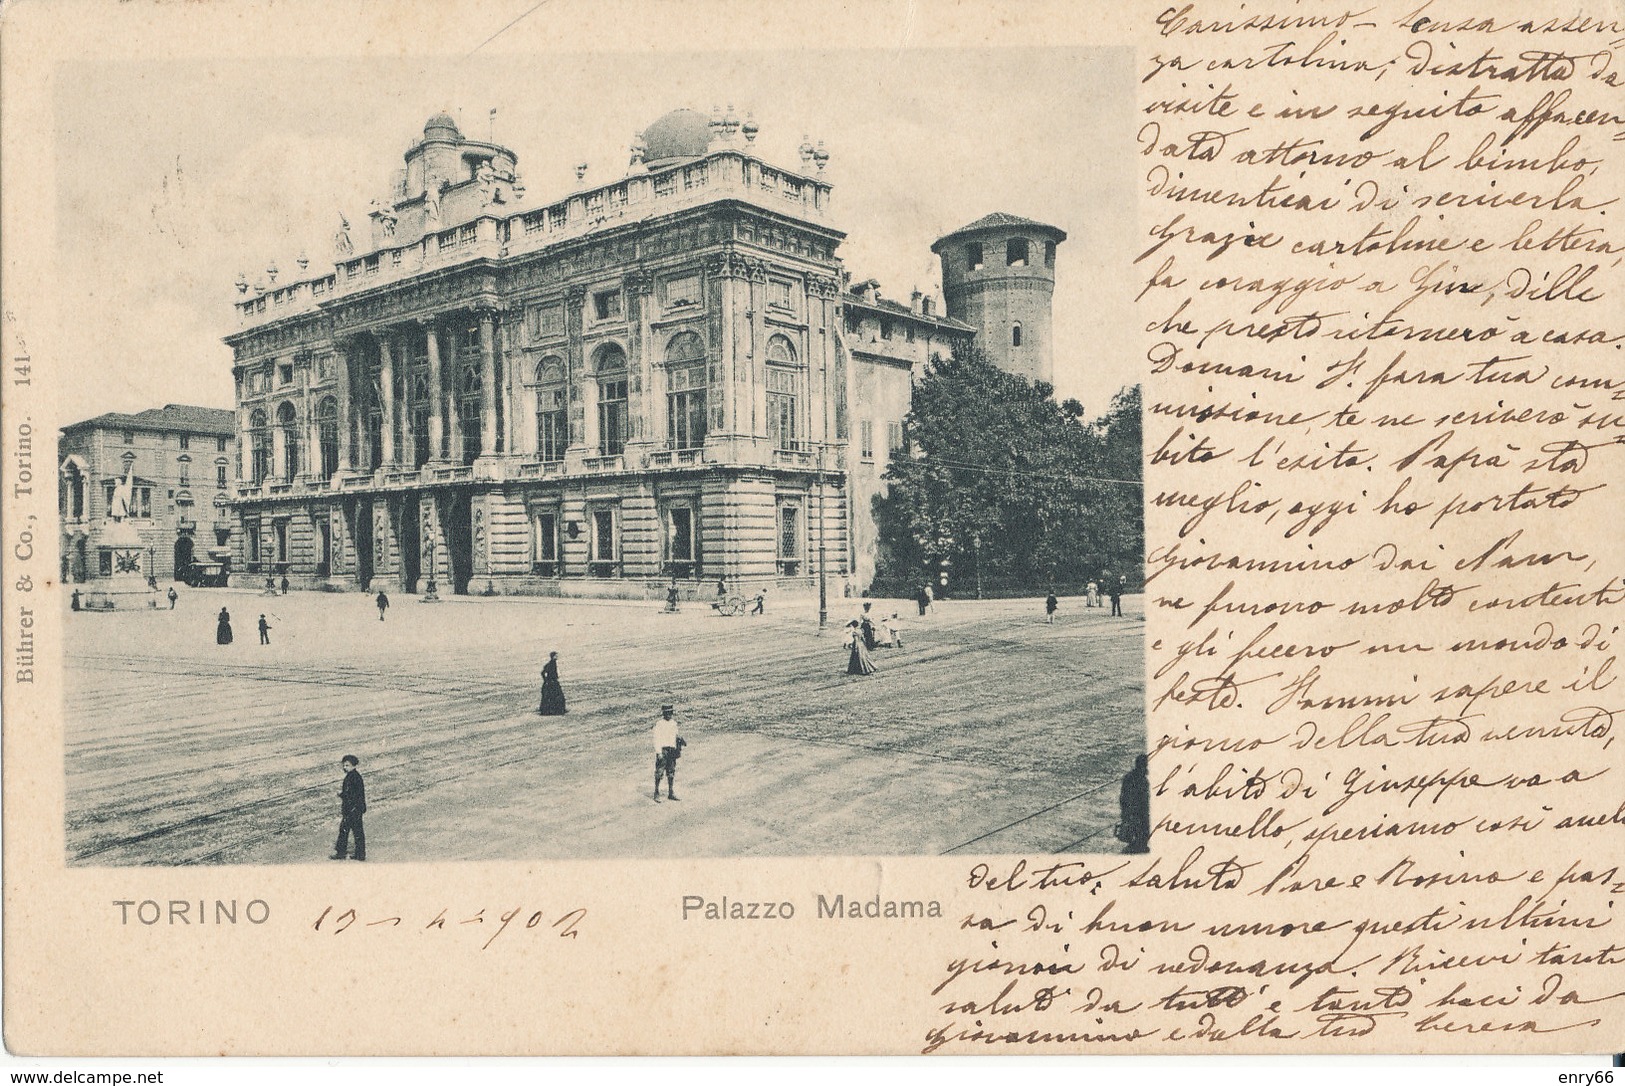 Carissimo – Senza assen=
za cartolina; distratta da
visite e in seguito affacen=
data attorno al bimbo,
dimenticai di scriverla.
Grazie cartoline e lettera,
fa coraggio a Gin, dille
che presto ritornerò a casa.
Domani farà tua com=
missione, te ne scriverò su=
bito l'esito. Papà sta
meglio, oggi ho portato
Giovannino dai
ne furono molto contenti
e gli fecero un mondo di
festa. Fammi sapere il
giorno della tua venuta,
l'abito di Giuseppe va a
pennello, speriamo così quel
del tuo. Saluta e Rosina e pas=
sa di buon umore questi ultimi
giorni di vedovanza. Ricevi tanti
saluti da tutti e tanti baci da
Giovannino e dalla tua Teresa
Bührer & Co., Torino. 141
TORINO
902
Palazzo Madama
www.delcampe.net
enry66